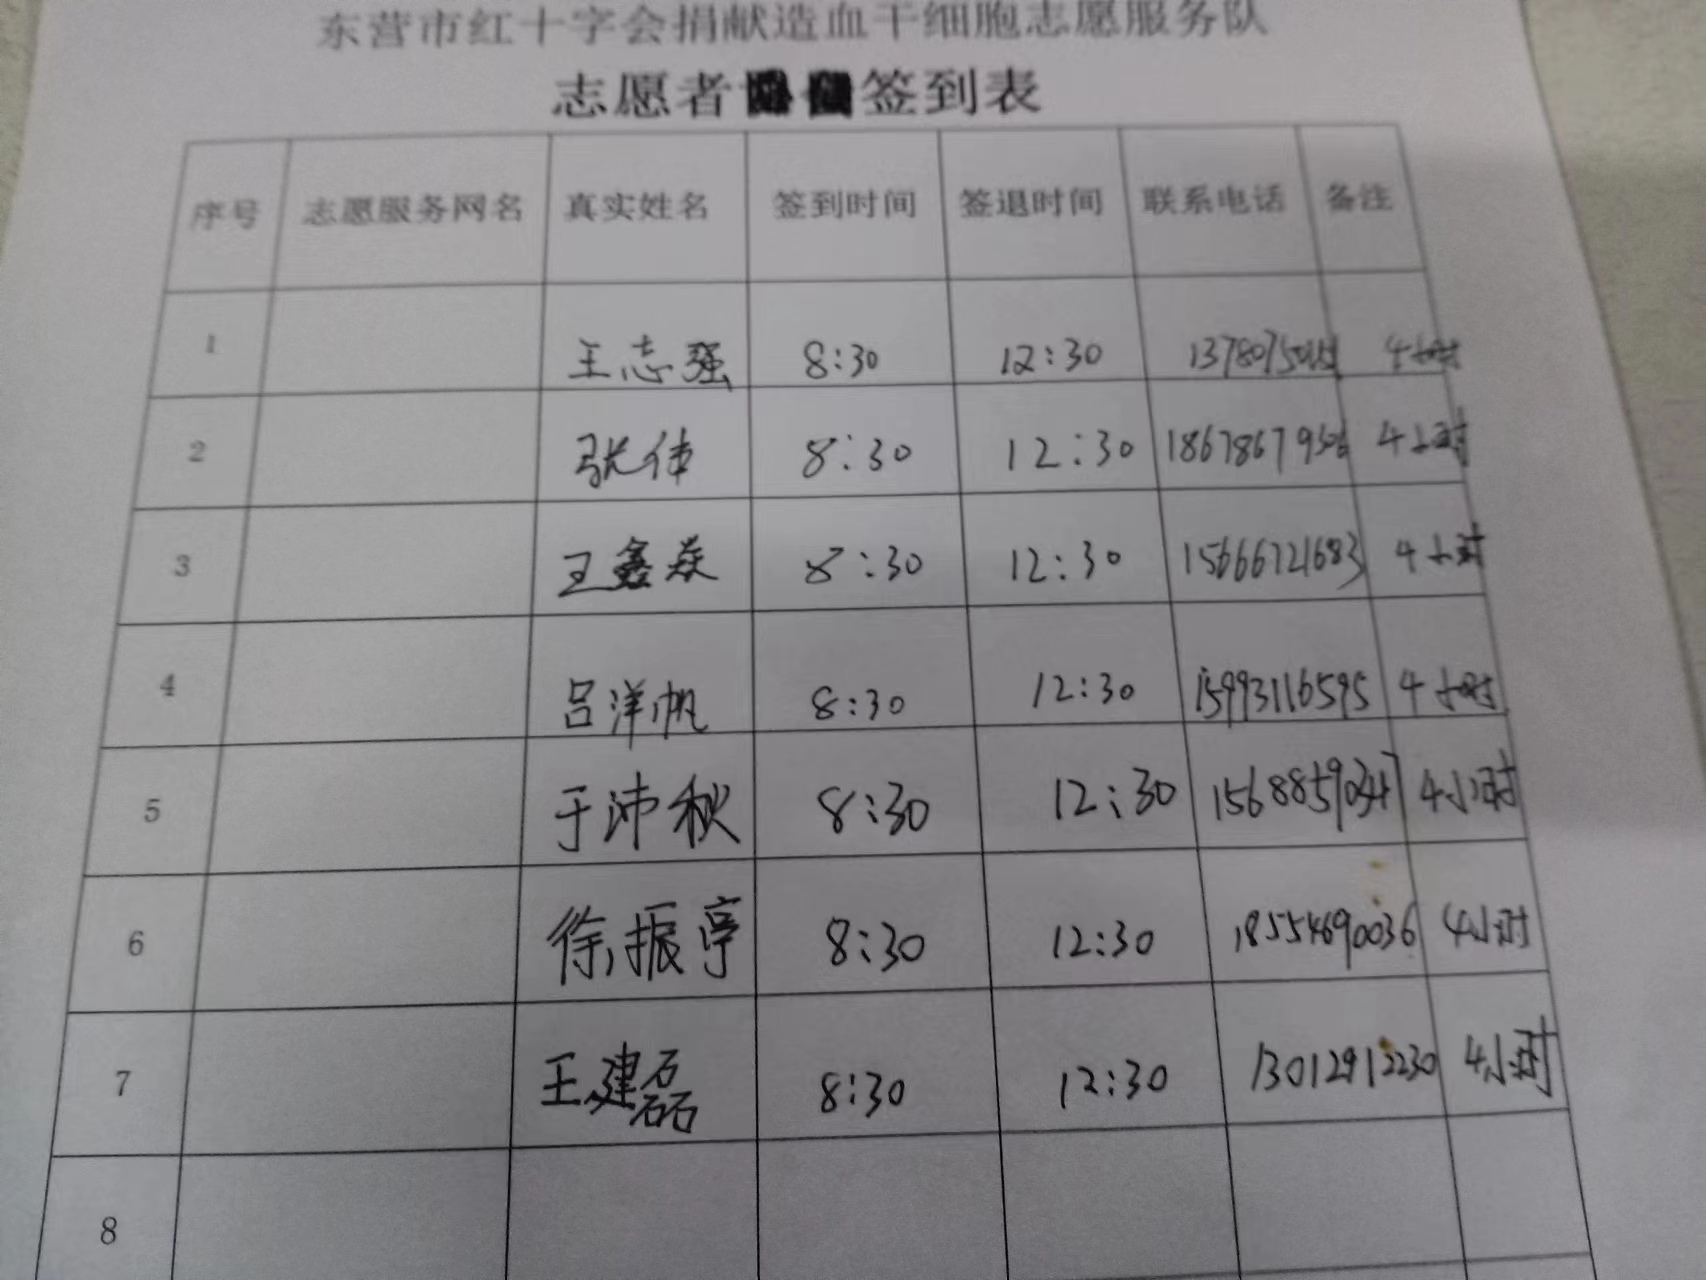 东营市红十字会捐献造血干细胞志愿服务队
志愿者 签到表
序号 志愿服务网名 真实姓名 签到时间 签退时间 联系电话 备注
1 王志强 8:30 12:30 4小时
2 张伟 8:30 12:30 4小时
3 王鑫焱 8:30 12:30 15666721683 4小时
4 吕洋帆 8:30 12:30 15993116595 4小时
5 于沛秋 8:30 12:30 15688590347 4小时
6 徐振亭 8:30 12:30 18554690036 4小时
7 王建磊 8:30 12:30 13012912230 4小时
8